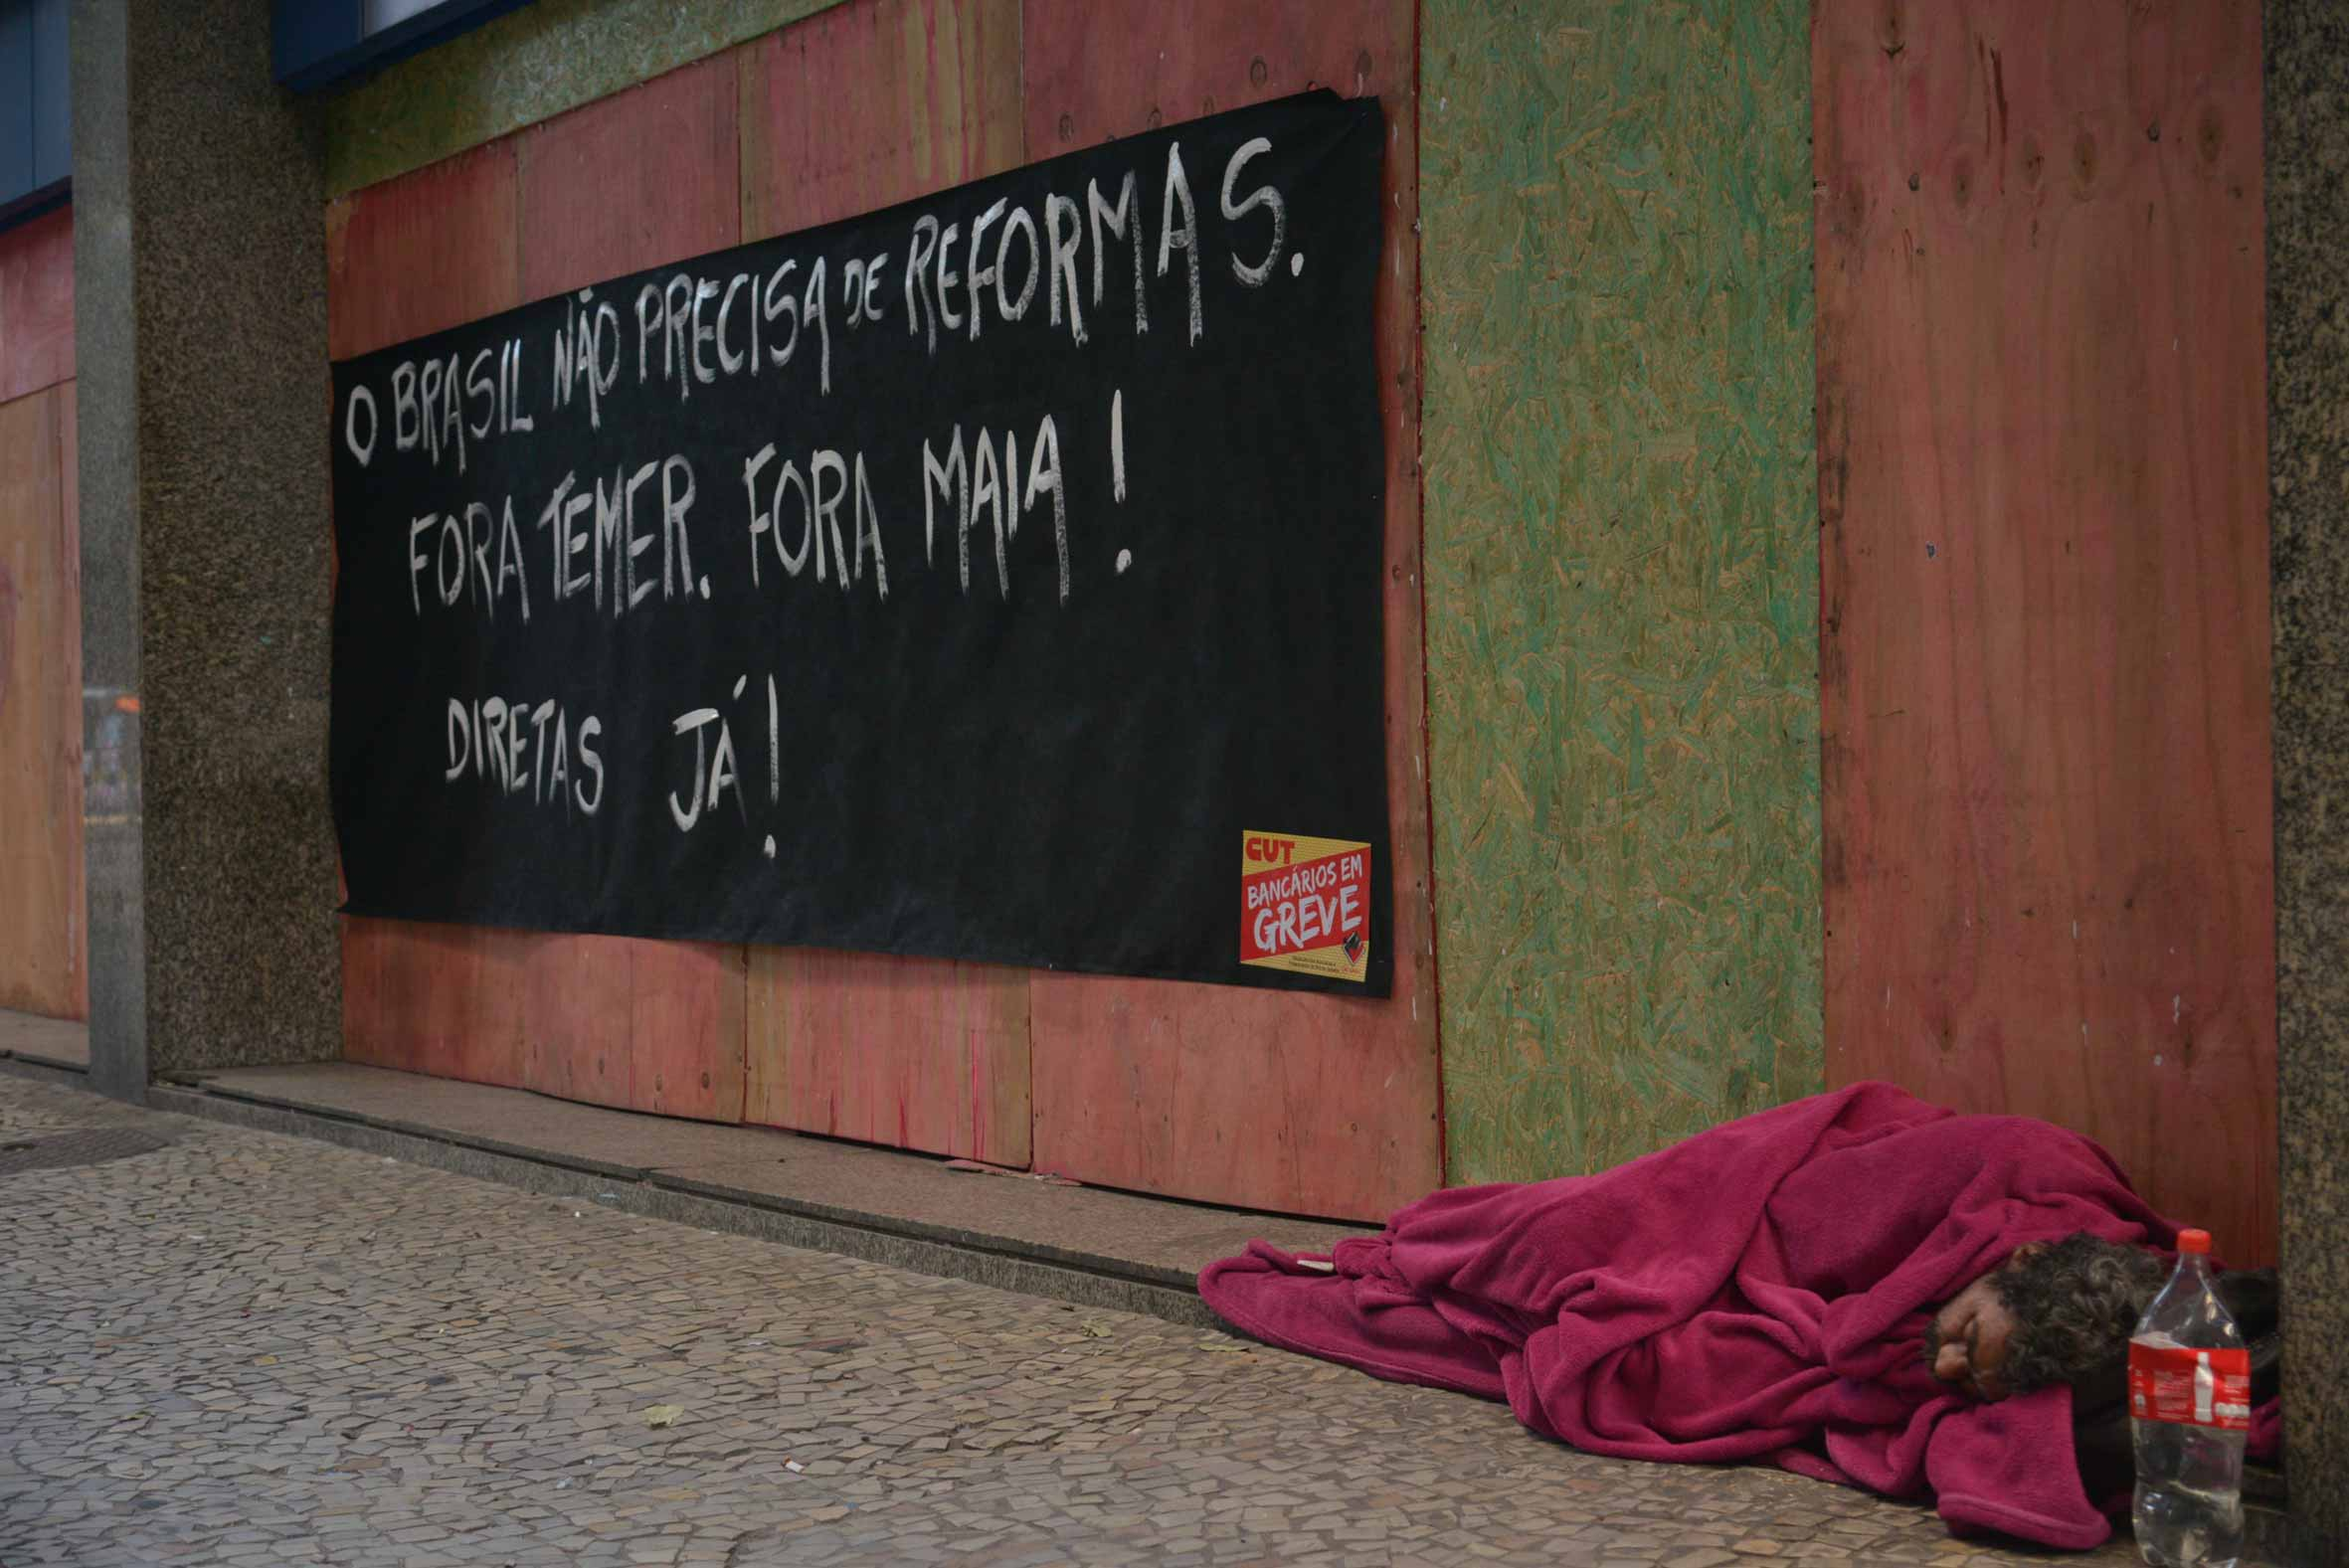 O BRASIL NÃO PRECISA DE REFORMAS.
FORA TEMER. FORA MAIA!
DIRETAS JÁ!
CUT
BANCÁRIOS EM
GREVE